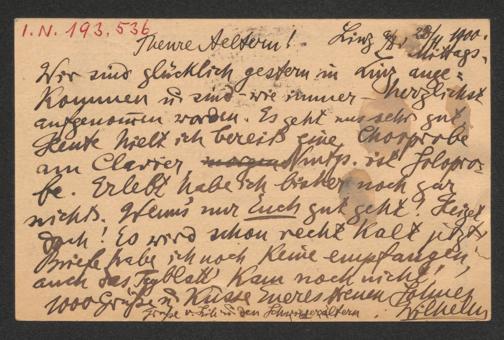 I.N. 193.536
Theure Aeltern! Linz 28/11 1900.
Mittags.
Wir sind glücklich gestern in Linz ange-
kommen u. sind wie immer herzlichst
aufgenommen worden. Es geht uns sehr gut.
Heute hielt ich bereits eine Chorprobe
am Clavier morgen ist Solopro-
be. Erlebt habe ich bisher noch gar
nichts. Wenns nur Euch gut geht! Heizet
doch! Es wird schon recht kalt jetzt
Briefe habe ich noch keine empfangen,
auch das Tagblatt kam noch nicht!
1000 Grüße u. Küsse Eueres treuen Sohnes
Wilhelm
Grüße v. u. den Schwiegereltern